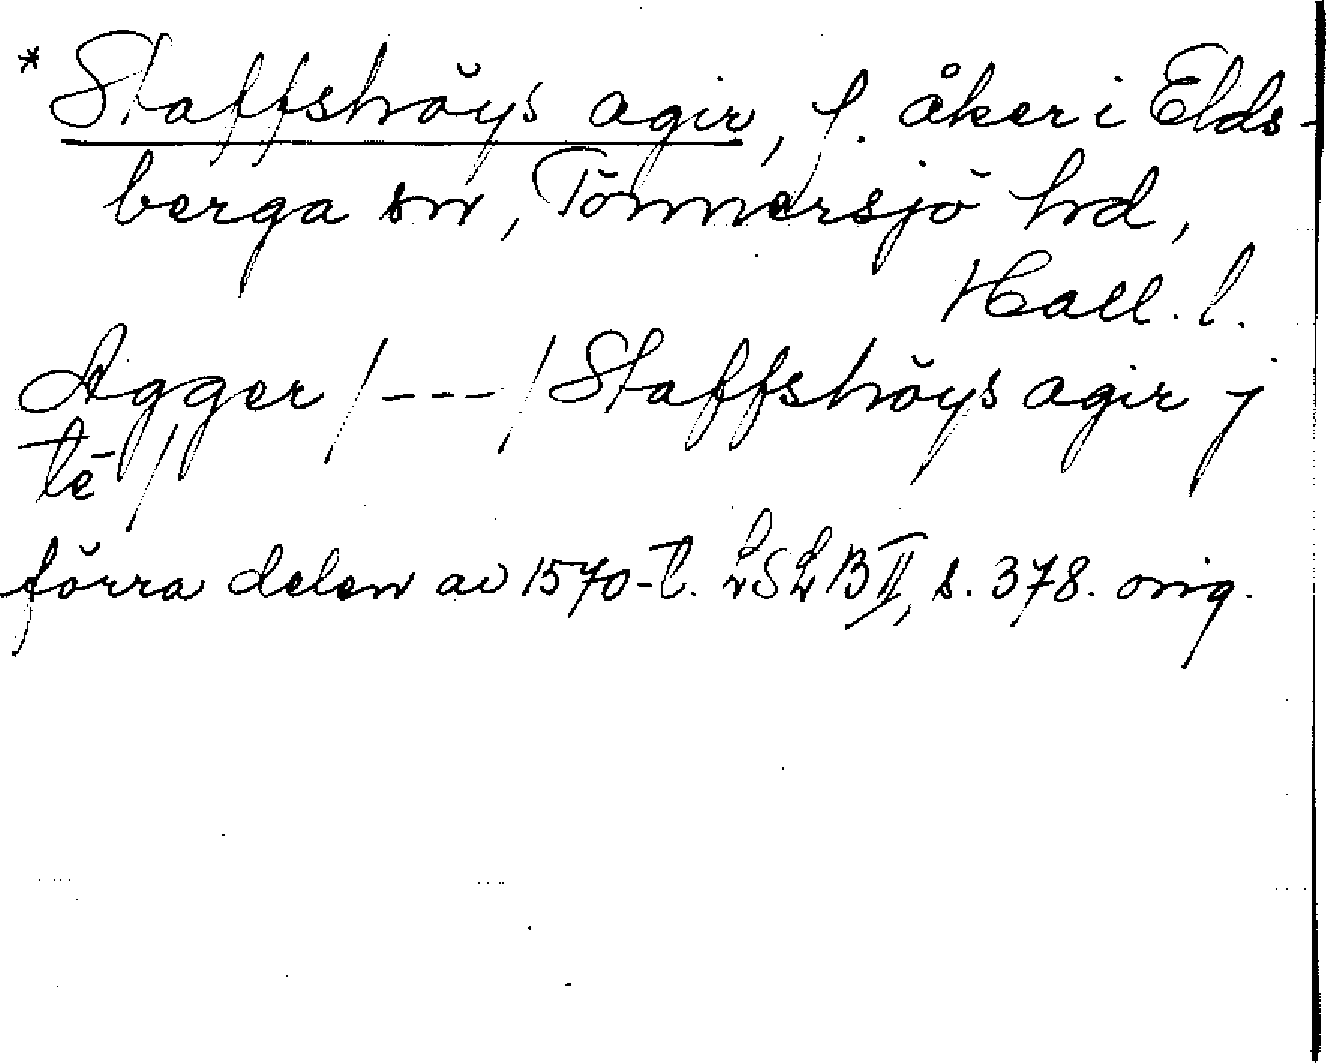 * Staffshöys agir, f. åker i Elds-
berga sn, Tönnersjö hd,
Hall. l.
Agger /---/ Staffshöys agir j
tē /
förra delen av 1570-t. LSLB II, s. 378. orig.